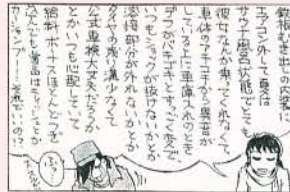 鉄板むき出しの内装に
エアコン外して夏は
サウナ風呂状態でとても
彼女なんか乗ってくれなくて
車体のアチコチから異音が
しているとに車庫入れのとき
デフがバキゴキとすっごく吠えて
いつもショックが抜けないかとか
溶接部分が外れないかとか
タイヤの残り溝少なくて
公式車検大丈夫だろうか
とかいつも心配していて
給料ボーナスほとんどつぎ
込んでも賞品はティッシュとか
カーシャンプー！それでいいの!?
ふ？